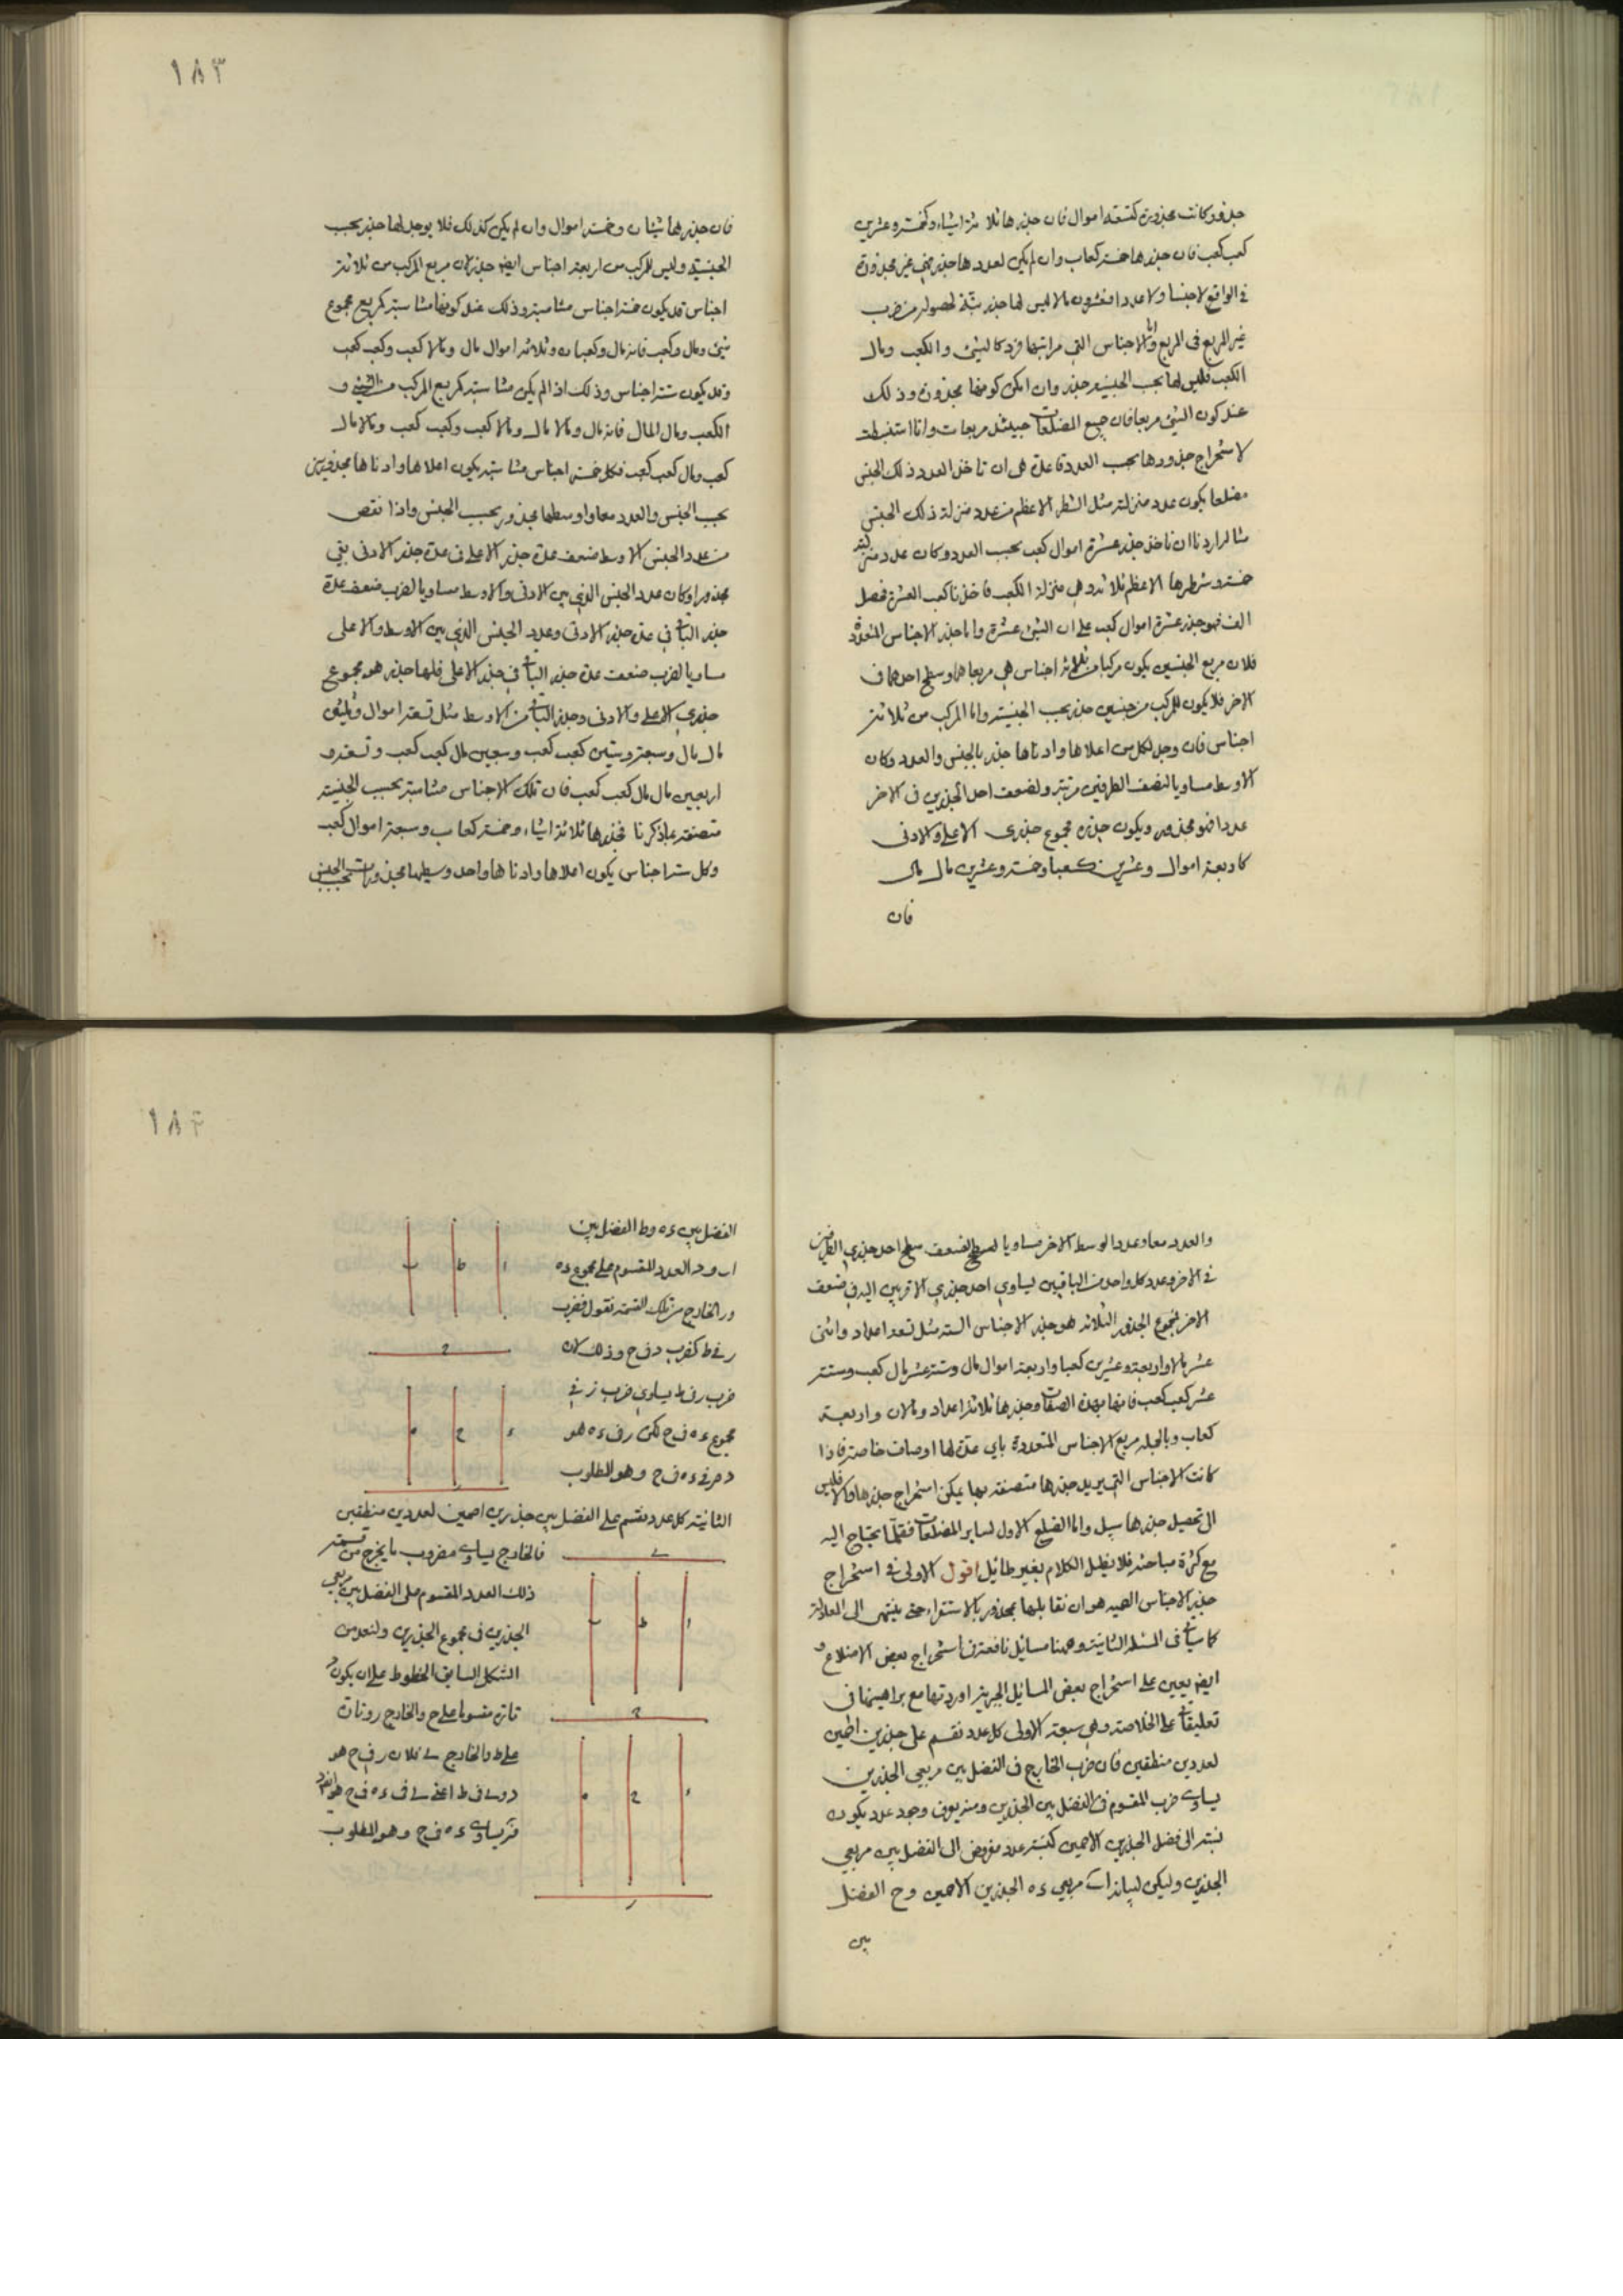 ١٨٣
جذور كانت مجذورة كتسعة اموال فان جذرها ثلاثة اشياء وكخمسة وعشرين
كعب كعب فان جذرها خمسة كعاب وان لم يكن لعددها جذر فهى غير مجذورة
فى الواقع لا جنسا ولا عددا فعشرون مالا ليس لها جذر بتة لحصوله من ضرب
غير المربع فى المربع واما الاجناس التى مراتبها فرد كالشئ والكعب ومال
الكعب فليس لها بحب الجنسية جذر وان امكن كونها مجذورة وذلك
عند كون الشئ مربعا فان جميع المضلعات حينئذ مربعات وانا استنبطت
لاستخراج جذورها بحب العدد قاعدة هى ان تاخذ لعدد ذلك الجنس
مضلعا يكون عدد منزلته مثل الشطر الاعظم من عدد منزلة ذلك الجنس
مثاله اردنا ان ناخذ جذر عشرة اموال كعب بحب العدد وكان عدد منزلته
خمسة وشطرها الاعظم ثلاثة وهى منزلة الكعب فاخذنا كعب العشرة فحصل
الف فهو جذر عشرة اموال كعب على ان الشئ عشرة واما جذر الاجناس المتعددة
فلان مربع الجنسين يكون مركبا من ثلاثة اجناس هى مربعاهما وسطح احدهما فى
الاخر فلا يكون للمركب من جنسين جذر بحب الجنسية واما المركب من ثلاثة
اجناس فان وجد لكل من اعلاها وادناها جذر بالجنس والعدد وكان
الاوسط مساويا لنصف الطرفين مرتبة ولضعف احد الجذرين فى الاخر
عددا فهو مجذور ويكون جذره مجموع جذرى الاعلى والادنى
كاربعة اموال وعشرين كعبا وخمسة وعشرين مال مال
فان
فان جذرها شيئان وخمسة اموال وان لم يكن كذلك فلا يوجد لها جذر بحب
الجنسية وليس للمركب من اربعة اجناس ايضا جذر لان مربع المركب من ثلاثة
اجناس قد يكون خمسة اجناس متناسبة وذلك عند كونها متناسبة كمربع مجموع
شئ ومال وكعب فانه مال وكعبان وثلاثة اموال مال ومالا كعب وكعب كعب
وقد يكون ستة اجناس وذلك اذا لم يكن متناسبة كمربع المركب من الشئ و
الكعب ومال المال فانه مال ومالا مال ومالا كعب وكعب كعب ومالا مال
كعب ومال كعب كعب فكل خمسة اجناس متناسبة يكون اعلاها وادناها مجذورين
بحب الجنس والعدد معا واوسطها مجذور بحسب الجنس واذا نقص
من عدد الجنس الاوسط ضعف عدة جذر الاعلى فى عدة جذر الادنى بقى
مجذورا وكان عدد الجنس الذى بين الادنى والاوسط مساويا لضرب ضعف عدة
جذر الباقى فى عدة جذر الادنى وعدد الجنس الذى بين الاوسط والاعلى
مساويا لضرب ضعف عدة جذر الباقى فى جذر الاعلى فلها جذر هو مجموع
جذرى الاعلى والادنى وجذر الباقى من الاوسط مثل تسعة اموال وثلثى
مال مال وسبعة وستين كعب كعب وسبعين مال كعب كعب وتسعة و
اربعين مال مال كعب كعب فان تلك الاجناس متناسبة بحسب الجنسية
متصفة بما ذكرنا فجذرها ثلاثة اشياء وخمسة كعاب وسبعة اموال كعب
وكل ستة اجناس يكون اعلاها وادناها واحد وسطيها مجذورات بحسب الجنس
١٨٤
والعدد معا وعدد الوسط الاخر مساويا لضعف سطح احد جذرى الطرفين
فى الاخر وعدد كل واحد من الباقيين يساوى احد جذرى الاقربين اليه فى ضعف
الاخر فمجموع الجذور الثلاثة هو جذر الاجناس الستة مثل تسعة اعداد واثنى
عشر مالا واربعة وعشرين كعبا واربعة اموال مال وستة عشر مال كعب وستة
عشر كعب كعب فانها بهذه الصفات وجذرها ثلاثة اعداد ومالان واربعة
كعاب وبالجملة مربع الاجناس المتعددة باى عدة لها اوصاف خاصة فاذا
كانت الاجناس التى يريد جذرها متصفة بها يمكن استخراج جذرها والا فليس
الى تحصيل جذرها سبيل واما الضلع الاول لساير المضلعات فقلما يحتاج اليه
مع كثرة مباحثه فلا نطيل الكلام بغير طائل اقول الاولى فى استخراج
جذر الاجناس الصعبة هو ان نقابلها بمجذور بالاستقراء حتى ينتهى الى العادلة
كما سياتى فى المسئلة الثانية وههنا مسائل نافعة فى استخراج بعض الاضلاع و
ايضا يعين على استخراج بعض المسائل الجبرية اوردتها مع براهينها فى
تعليقاتى على الخلاصة وهى سبعة الاولى كل عدد نقسم على جذرين اصمين
لعددين منطقين فان ضرب الخارج فى الفضل بين مربعى الجذرين
يساوى ضرب المقسوم فى الفضل بين الجذرين ومنه يعرف وجود عدد يكون
نسبته الى فضل الجذرين الاصمين كنسبة عدد مفروض الى الفضل بين مربعى
الجذرين وليكن لبيانه اب مربعى ء ه الجذرين الاصمين و ح الفضل
بين
الفضل بين ء ه وط الفضل بين
ا ب و د العدد المقسوم على مجموع ء ه
و ر الخارج من تلك القسمة نقول فضرب
ر فى ط كضرب د فى ح وذلك لان
ضرب ر فى ط يساوى ضرب ر فى
مجموع ء ه فى ح لكن ر فى ء ه هو
د فى ح وهو المطلوب
الثانية كل عدد نقسم على الفضل بين جذرين اصمين لعددين منطقين
فالخارج يساوى مضروب ما يخرج من قسمة
ذلك العدد المقسوم على الفضل بين مربعى
الجذرين فى مجموع الجذرين ولنعد من
الشكل السابق الخطوط على ان يكون
تارة مقسوما على ح والخارج ر وتارة
على ط والخارج ى فلان ر فى ح هو
د و ى فى ط اعنى ى فى ء ه فى ح هو
فر يساوى ى فى ء ه وهو المطلوب